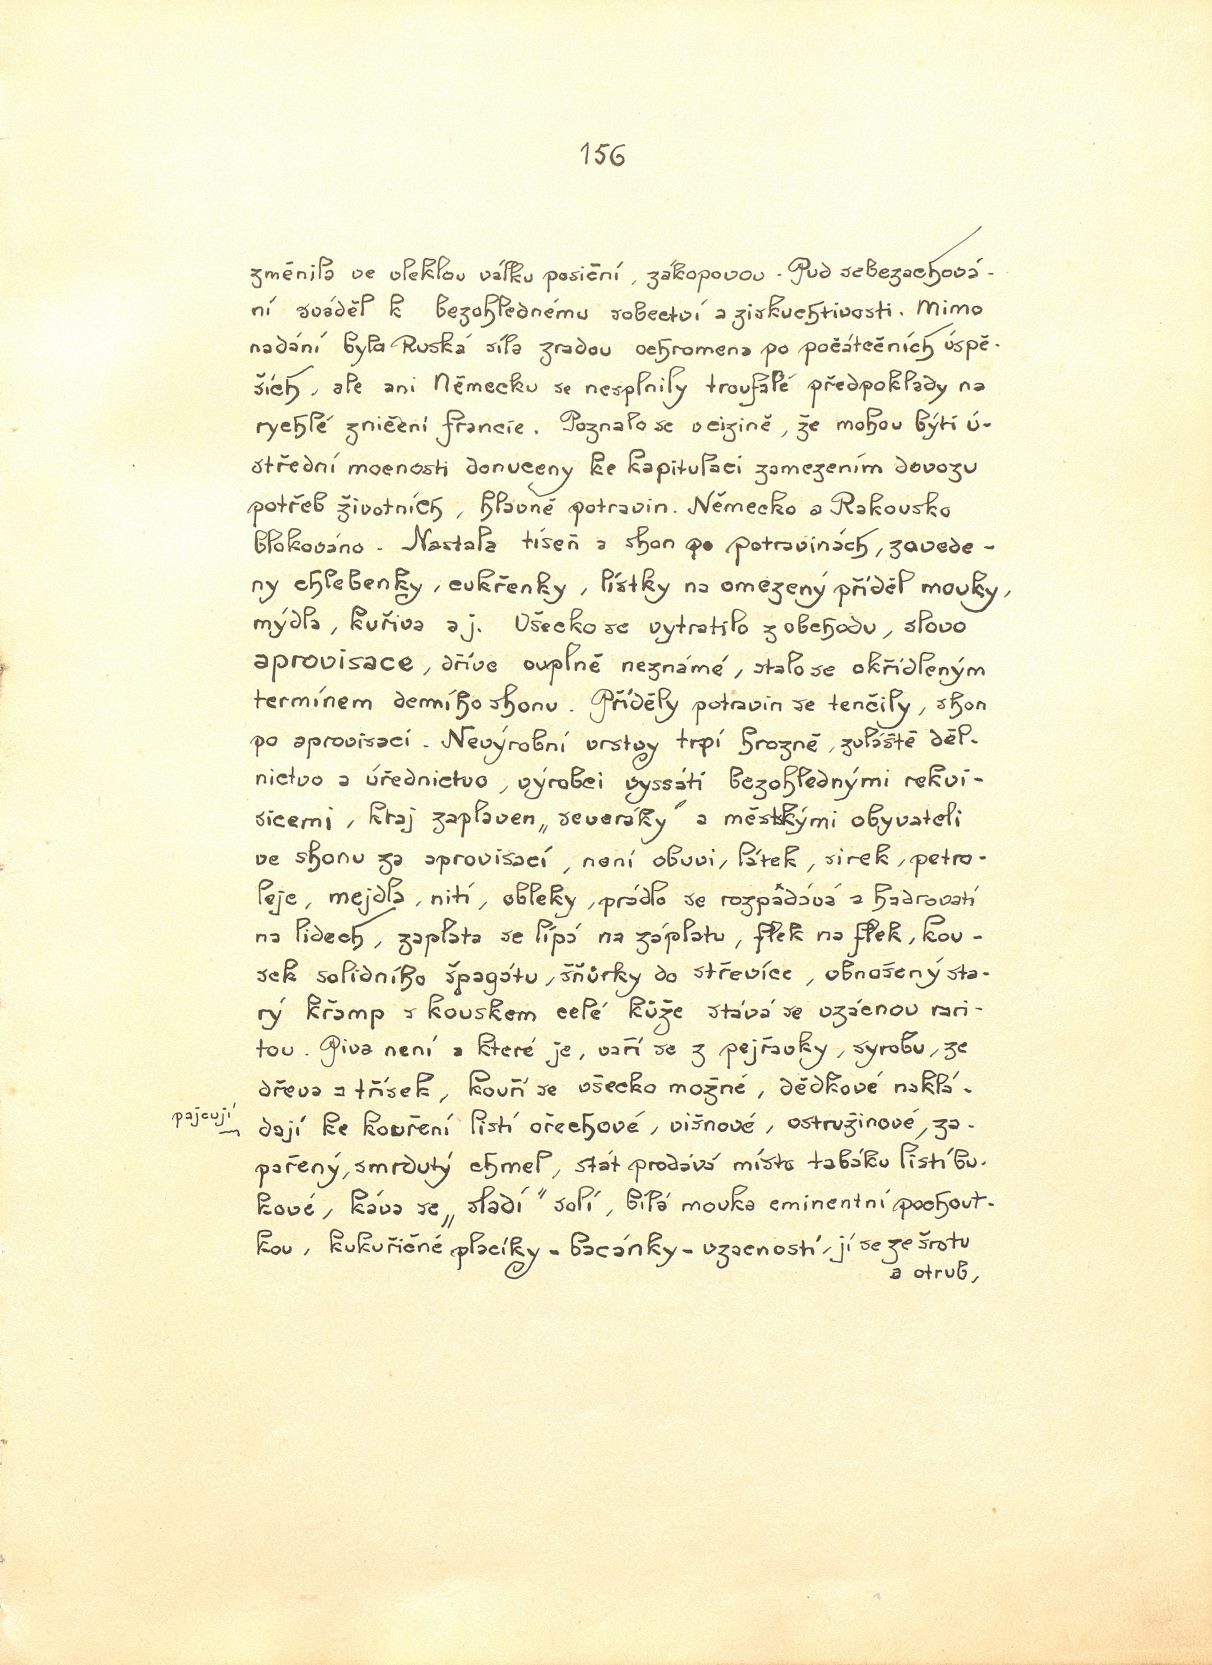 156
změnila ve vleklou válku posiční, zákopovou. Pud sebezachová-
ní sváděl k bezohlednému sobectví a ziskuchtivosti. Mimo
nadání byla Ruská síla zradou ochromena po počátečních úspě-
ších, ale ani Německu se nesplnily troufalé předpoklady na
rychlé zničení francie. Poznalo se v cizině, že mohou býti ú-
střední mocnosti donuceny ke kapitulaci zamezením dovozu
potřeb životních, hlavně potravin. Německo a Rakousko
blokováno. Nastala tíseň a shon po potravinách, zavede-
ny chlebenky, cukřenky, lístky na omezený příděl mouky,
mýdla, kuřiva a j. Všecko se vytratilo z obchodu, slovo
aprovisace, dříve ouplně neznámé, stalo se okřídleným
termínem denního shonu. Příděly potravin se tenčily, shon
po aprovisaci. Nevýrobní vrstvy trpí hrozně, zvláště děl-
nictvo a úřednictvo, výrobci vyssáti bezohlednými rekvi-
sicemi, kraj zaplaven „severáky" a městskými obyvateli
ve shonu za aprovisací, není obuvi, látek, sirek, petro-
leje, mejdla, nití, obleky, prádlo se rozpadává a hadrovatí
na lidech, zaplata se lípá na záplatu, flek na flek, kou-
sek solidního špagátu, šňůrky do střevíce, obnošený sta-
rý křamp s kouskem celé kůže stává se vzácnou rari-
tou. Piva není a které je, vaří se z pejřavky, syrobu, ze
dřeva a třísek, kouří se všecko možné, dědkové naklá-
pajcují
dají ke kouření listí ořechové, višnové, ostružinové, za-
pařený, smrdutý chmel, stát prodává místo tabáku listí bu-
kové, káva se „sladí" solí, bílá mouka eminentní pochout-
kou, kukuřičné placíky - bacánky - vzacností, jí se ze šrotu
a otrub,